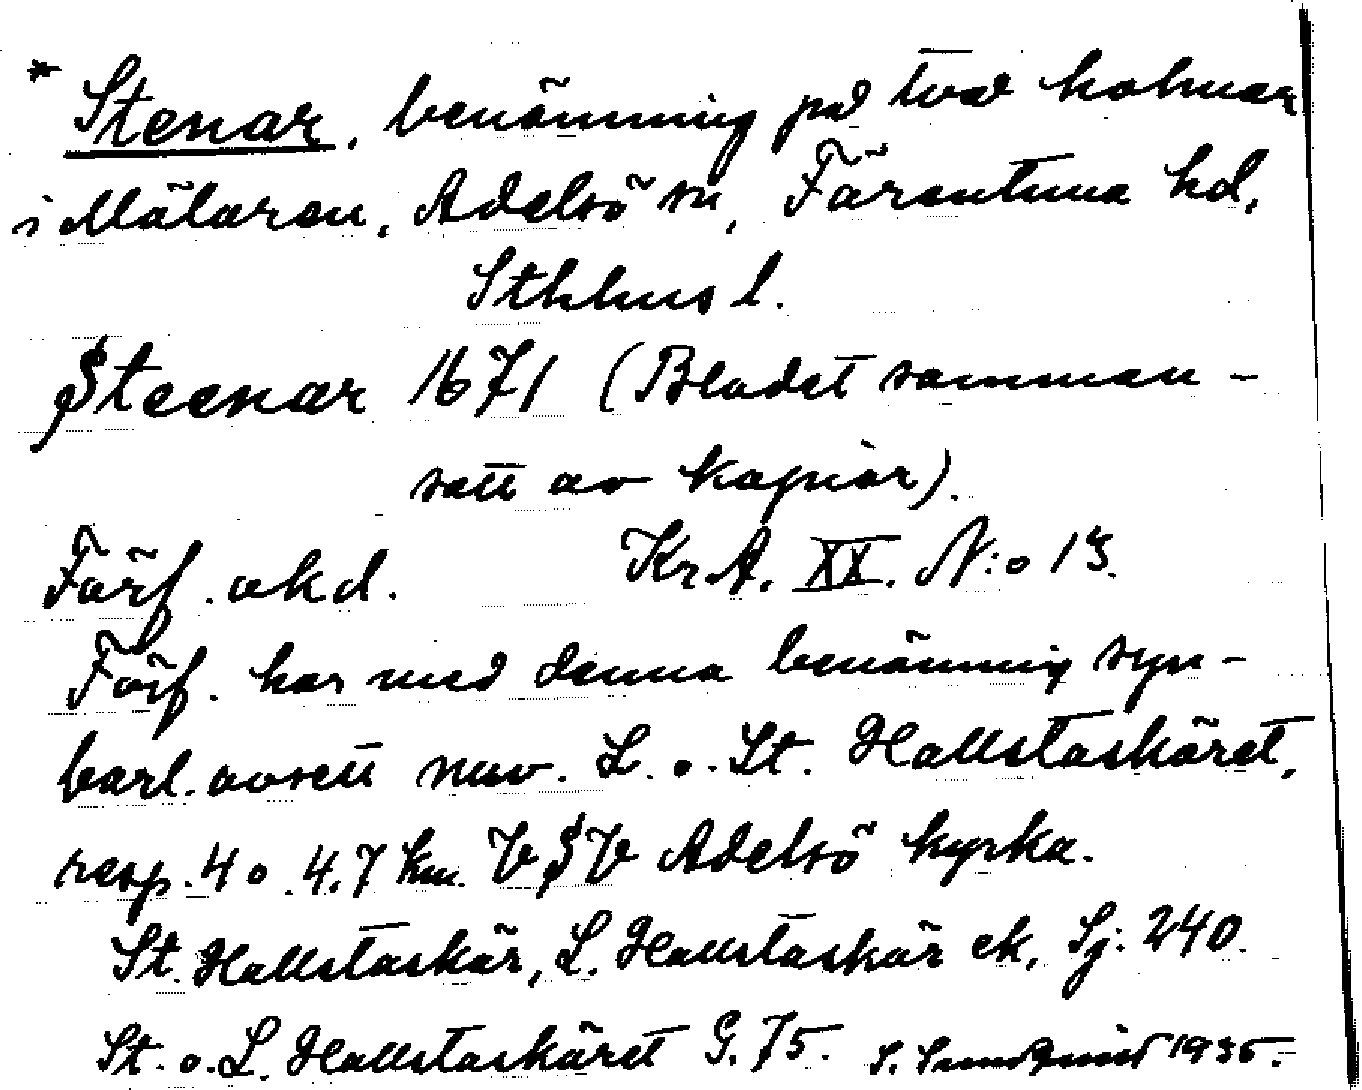 * Stenar, benämning på två holmar
i Mälaren, Adelsö sn, Färentuna hd,
Sthlms l.
Steenar 1671 (Bladet samman-
satt av kopior).
Förf. okd. KrA. XX. N:o 13.
Förf. har med denna benämning syn-
barl. avsett nuv. L. o. St. Hallstaskäret,
resp. 4 o 4.7 km. V S V Adelsö kyrka.
St. Hallstaskär, L. Hallstaskär ek. Sj: 240.
St. o. L. Hallstaskäret G. 75. S. 1935.